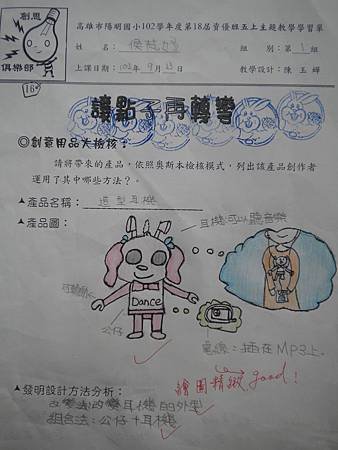 創思
俱樂部
高雄市陽明國小102學年度第18屆資優班五上主題教學學習單
姓 名：
組 別：第1組
上課日期：102年9月23日
教學設計：陳玉嬋
16
讓點子再轉彎
◎創意用品大檢核：
請將帶來的產品，依照奧斯本檢核模式，列出該產品創作者
運用了其中哪些方法？。
▲產品名稱：造型耳機
▲產品圖：
耳機可以聽音樂
Dance
公仔
電線：插在MP3上。
繪圖精緻 good！
▲發明設計方法分析：
改變法：改變耳機的外型
組合法：公仔＋耳機